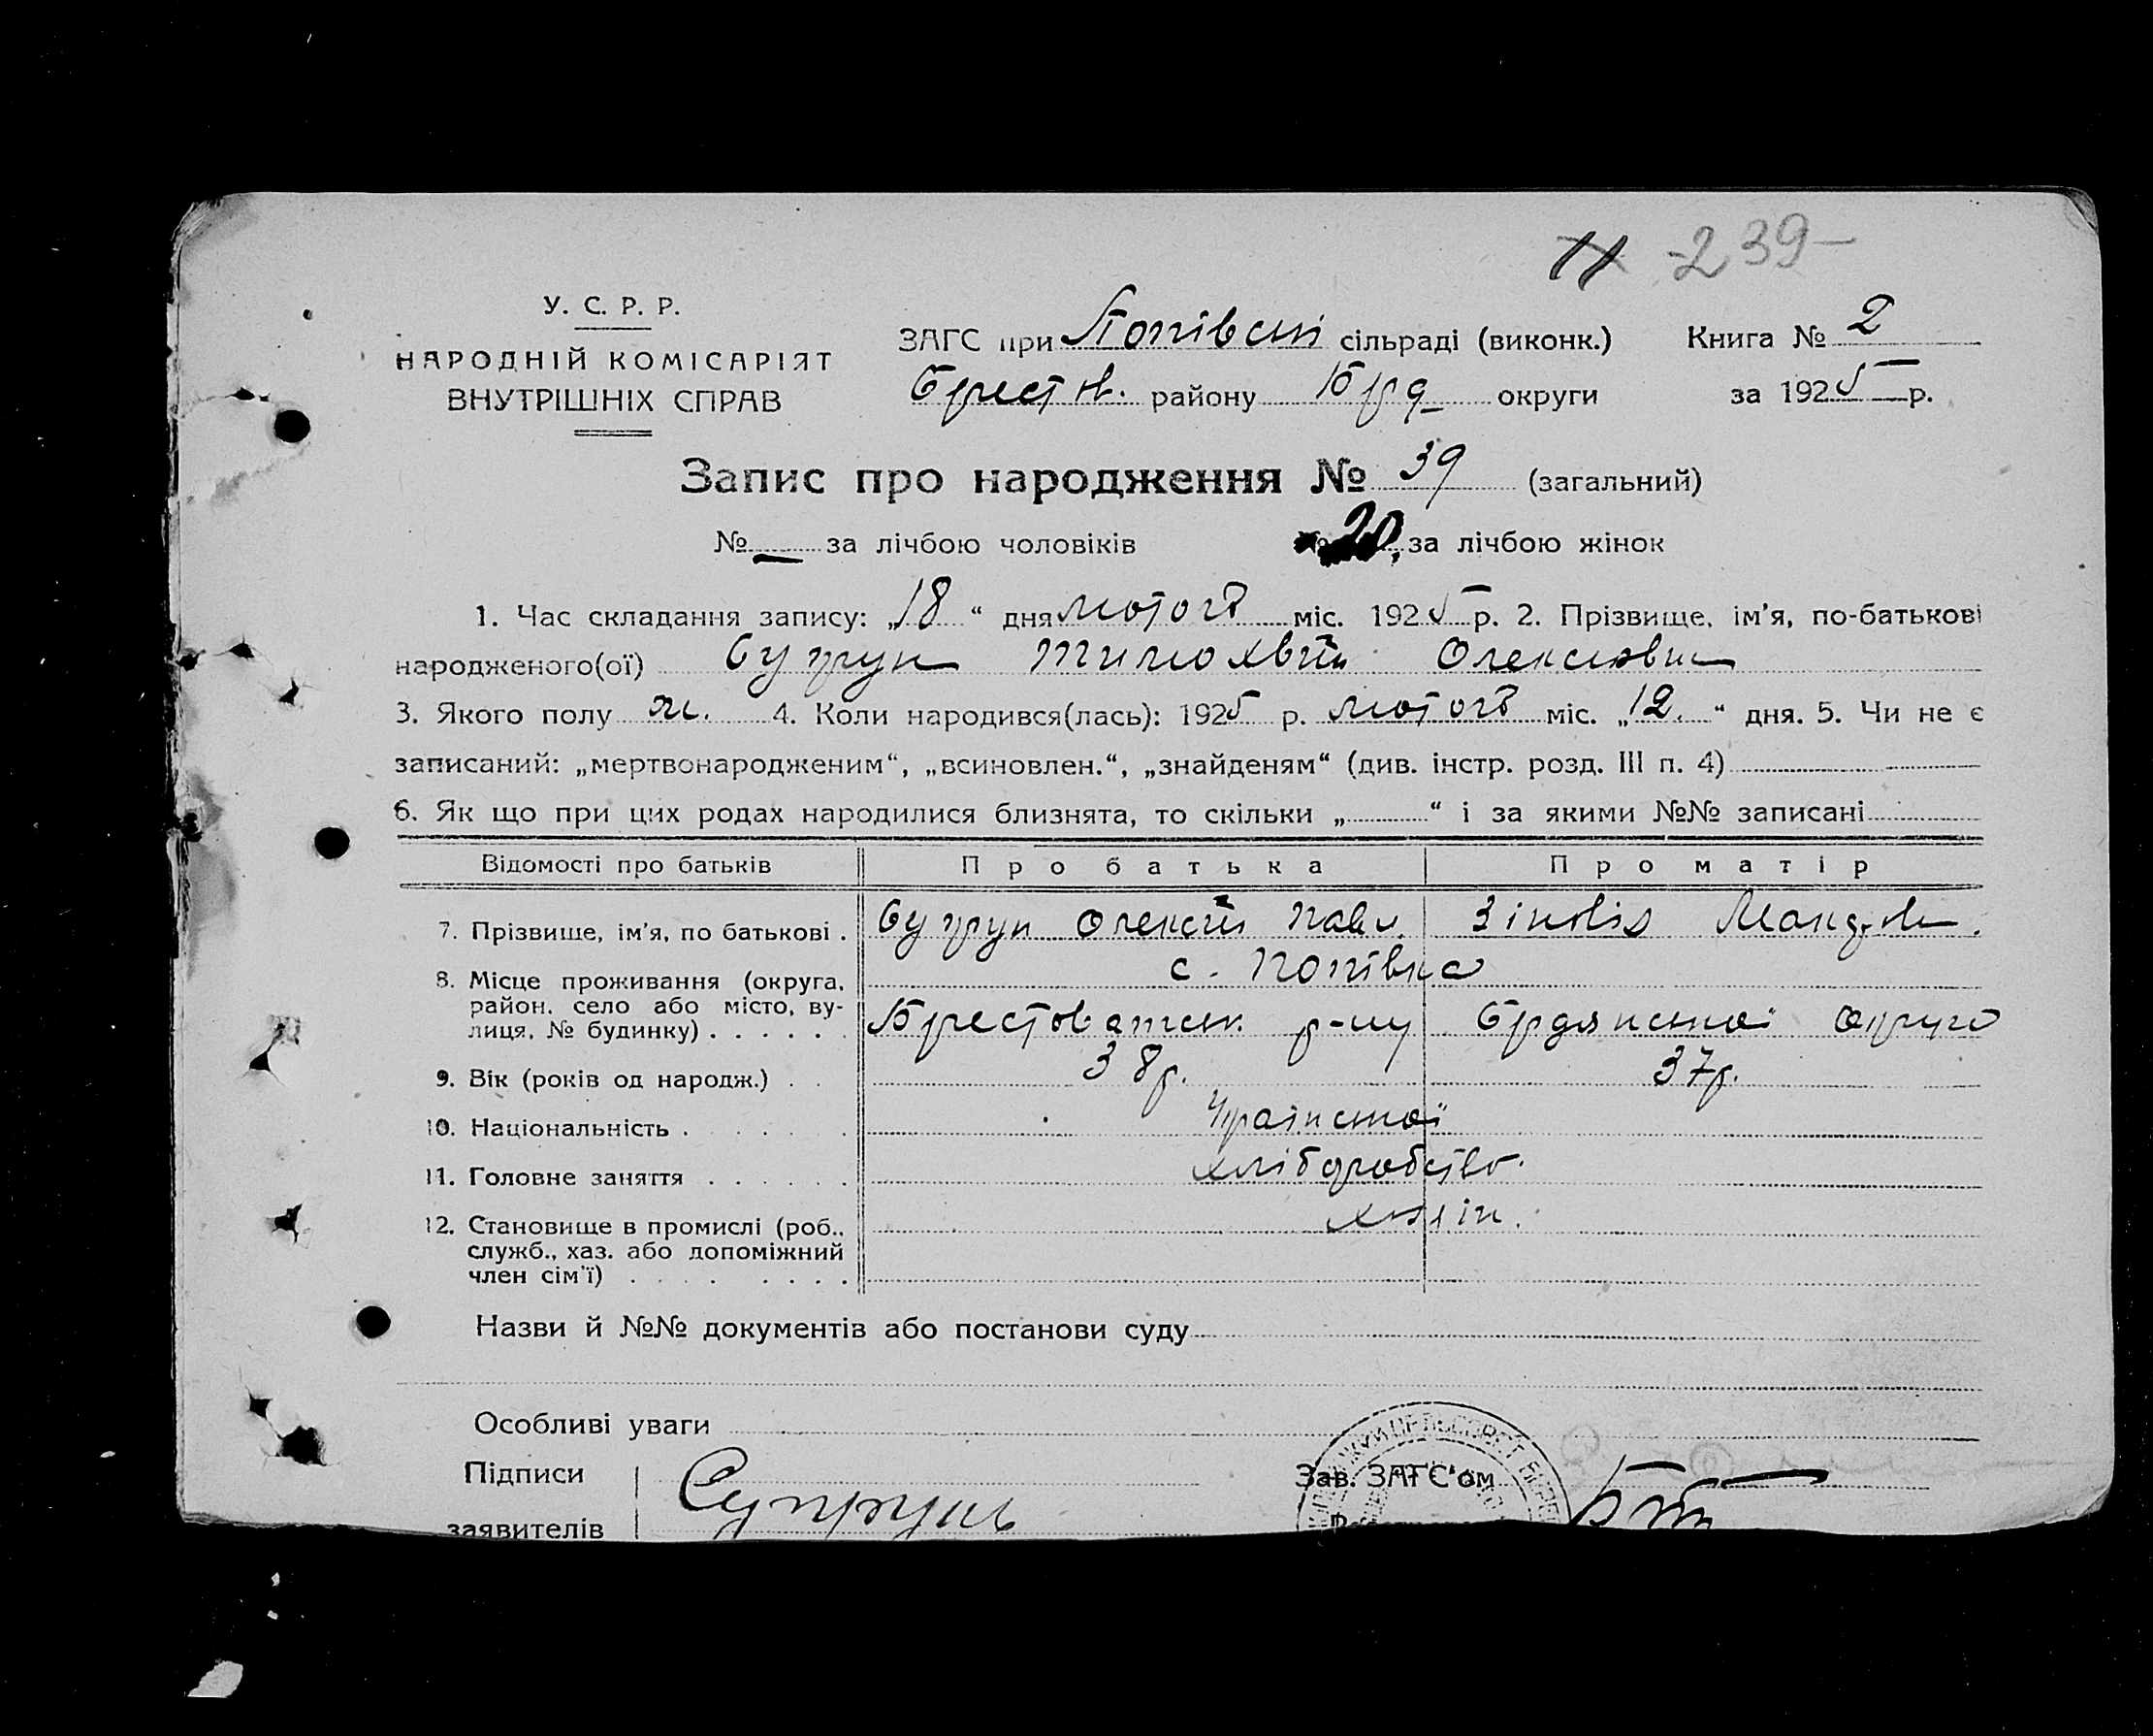 -239-
У. С. Р. Р.
НАРОДНІЙ КОМІСАРІЯТ
ВНУТРІШНІХ СПРАВ
ЗАГС при Попівській сільраді (виконк.) Книга № 2
Брестов. району Брд округи за 1925 р.
Запис про народження № 39 (загальний)
№ — за лічбою чоловіків № 20. за лічбою жінок
1. Час складання запису: „18“ дня лютого міс. 1925 р. 2. Прізвище, ім'я, по-батькові
народженого(ої) Супрун Олексіевн
3. Якого полу ж. 4. Коли народився(лась): 1925 р. лютого міс. „12.“ дня. 5. Чи не є
записаний: „мертвонародженим“, „всиновлен.“, „знайденям“ (див. інстр. розд. III п. 4)
6. Як що при цих родах народилися близнята, то скільки „ “ і за якими №№ записані
Відомості про батьків Про батька Про матір
7. Прізвище, ім'я, по батькові . Супрун Олексій Павл. Зіновія
8. Місце проживання (округа, с. Попівка
район, село або місто, ву-
лиця, № будинку) . . . . . . Брестоватськ. р-ну Бердянської округи
9. Вік (років од народж.) . . 38р. 37р.
10. Національність . . . . . . Української
11. Головне заняття . . . . . . хліборобство.
12. Становище в промислі (роб.,
служб., хаз. або допоміжний
член сім'ї) . . . . . . . .
Назви й №№ документів або постанови суду
Особливі уваги
Підписи Зав. ЗАГС'ом
заявителів Супрунь